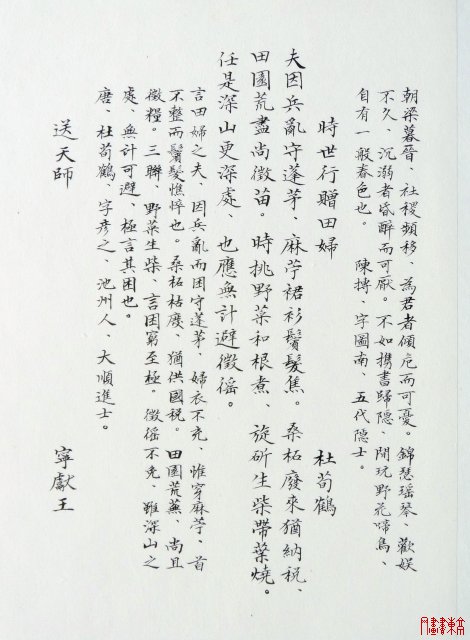 朝梁暮晉、社稷頻移、為君者傾危而可憂。錦瑟瑶琴、歡娱
不久、沉溺者昏醉而可厭。不如携書歸隐、閒玩野花啼鳥、
自有一般春色也。 陳摶、字圖南、五代隐士。
時世行贈田婦 杜荀鶴
夫因兵亂守蓬茅、麻苧裙衫鬢髮焦。桑柘廢來猶納税、
田園荒盡尚徵苗。時挑野菜和根煮、旋斫生柴帶葉燒。
任是深山更深處、也應無計避徵徭。
言田婦之夫、因兵亂而困守蓬茅、婦衣不充、惟穿麻苧、首
不整而鬢髮憔悴也。桑柘枯廢、猶供國税。田園荒蕪、尚且
徵糧。三聯、野菜生柴、言困窮至極。徵徭不免、雖深山之
處、無計可避、極言其困也。
唐、杜荀鶴、字彦之、池州人、大順進士。
送天師 寧獻王